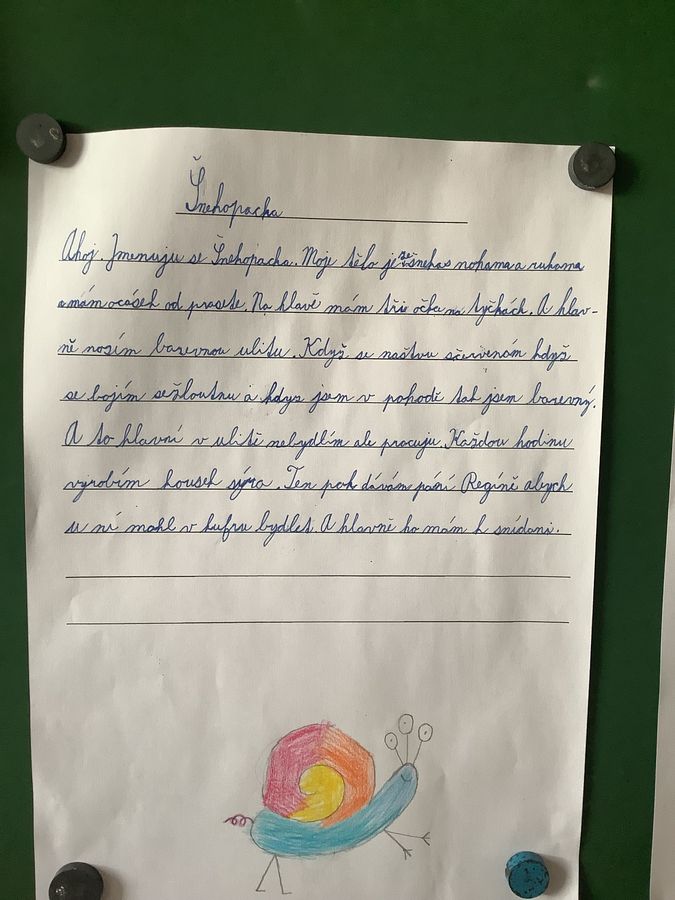 Šnehopacha
Ahoj. Jmenuju se Šnehopacha. Moje tělo je ze šneka s nohama a rukama
a mám ocásek od prasete. Na hlavě mám tři očka na tyčkách. A hlav-
ně nosím barevnou ulitu. Když se naštvu sčervenám když
se bojím sežloutnu a kdyz jsem v pohodě tak jsem barevný.
A to hlavní v ulitě nebydlím ale pracuju. Každou hodinu
vyrobím kousek sýra. Ten pak dávám pání Regíně abych
u ní mohl v kufru bydlet. A hlavně ho mám k snídani.